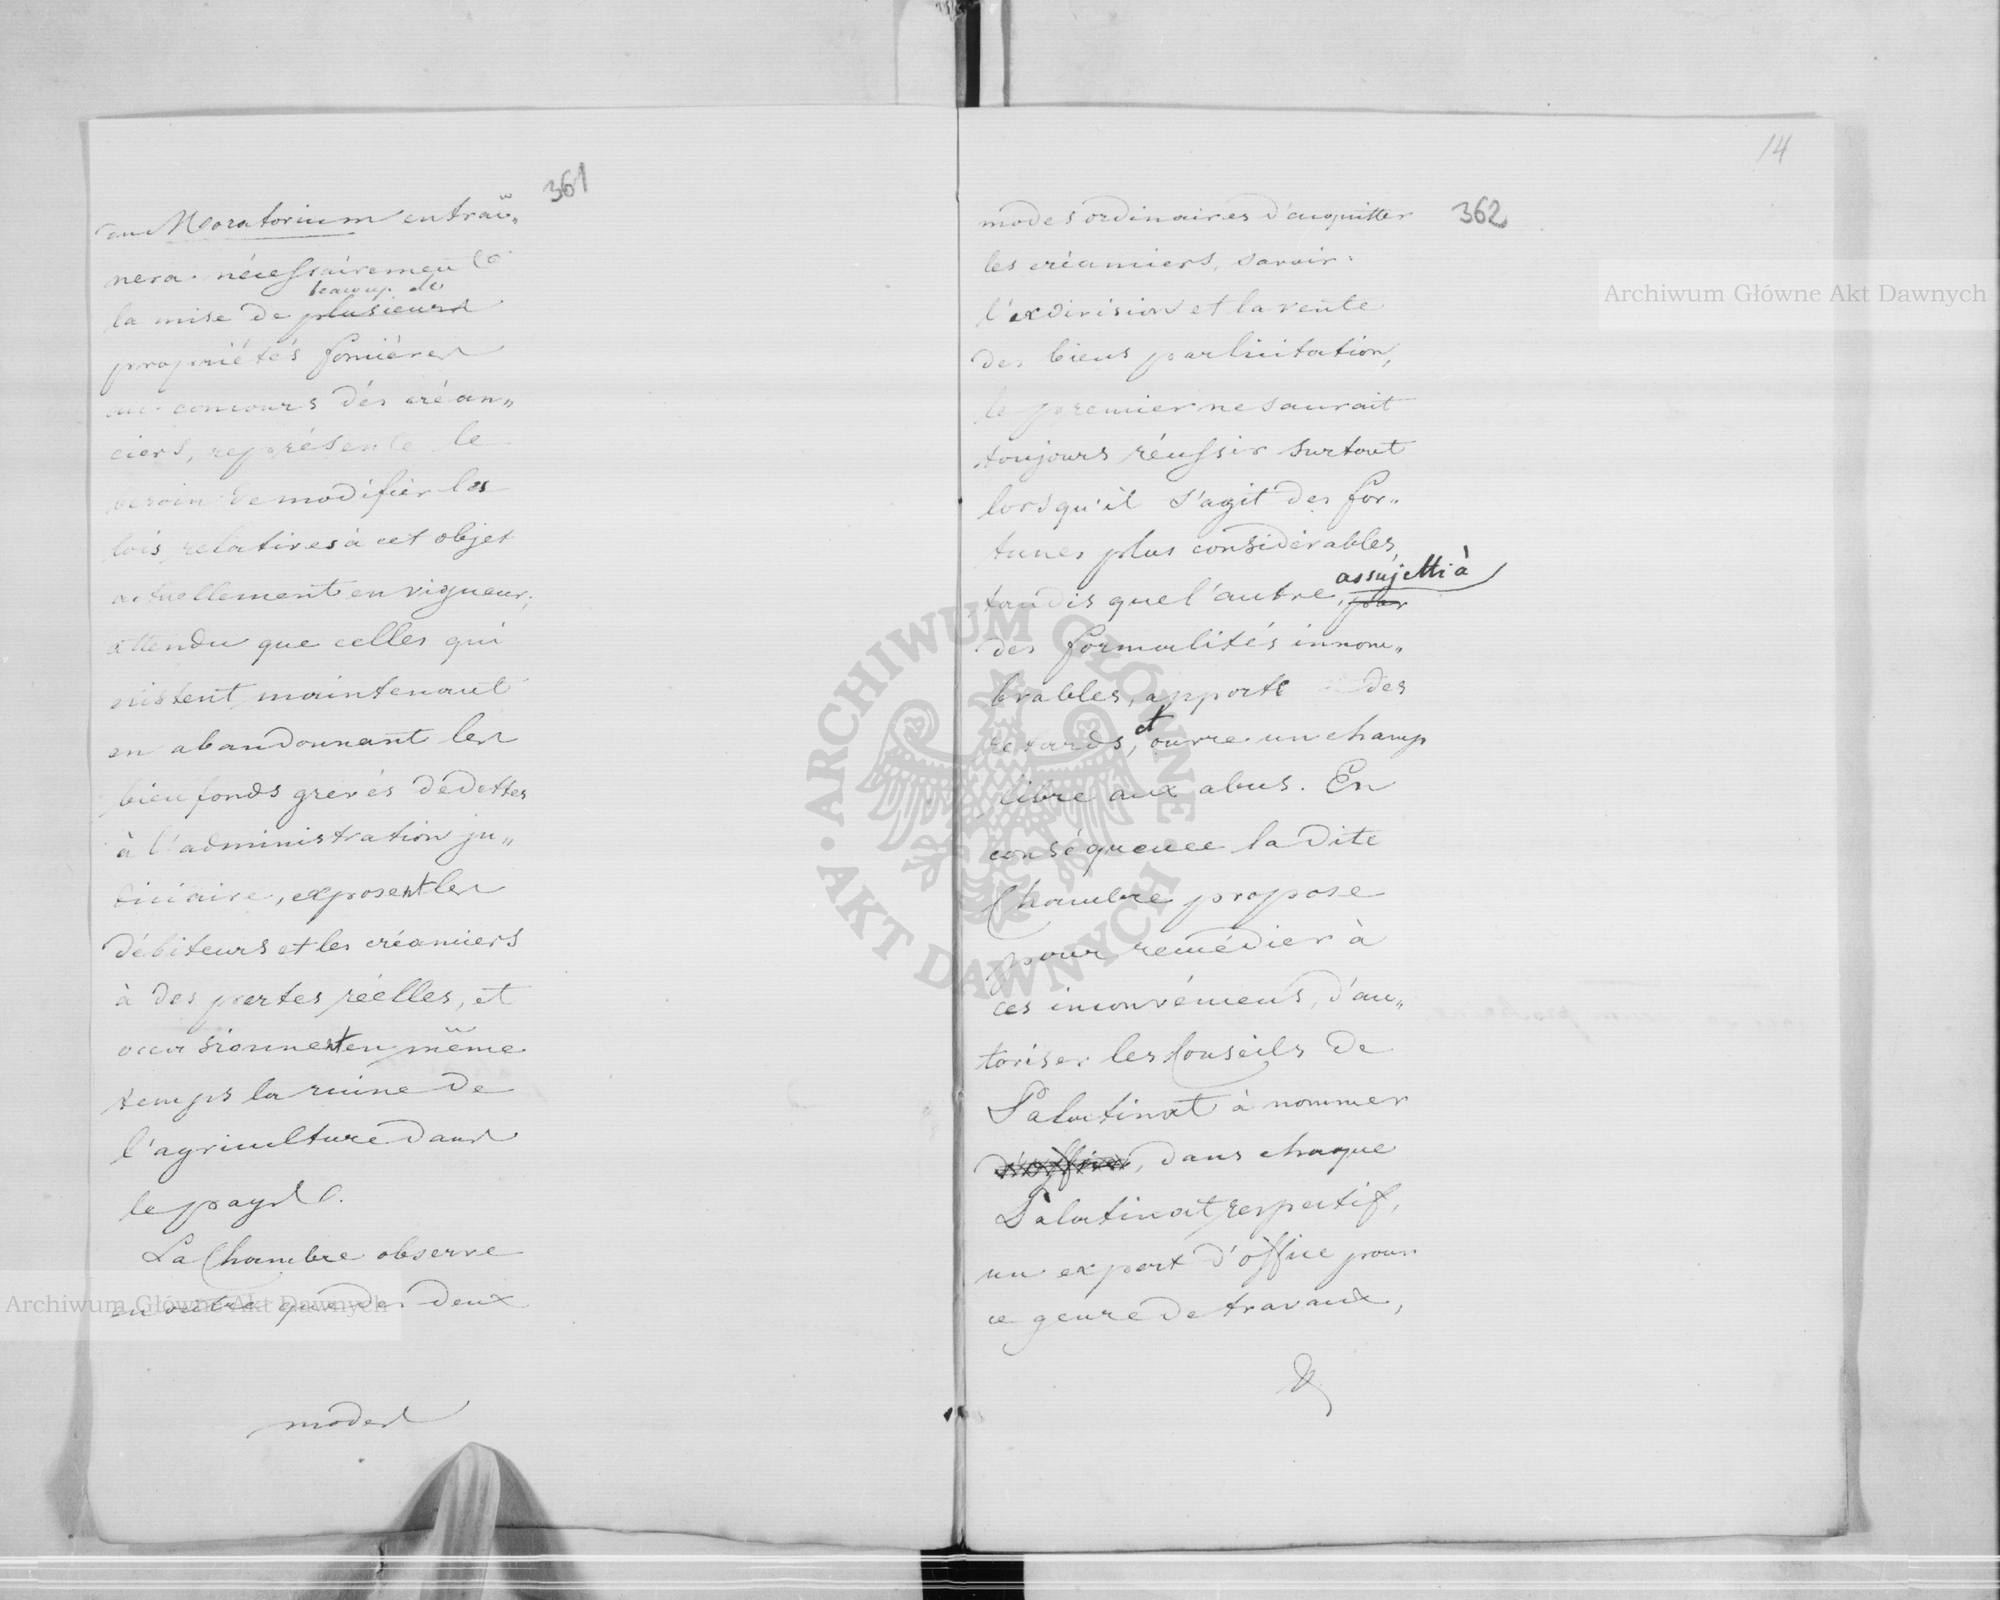 361
du Moratorium entraî„
nera nécessairement
beaucoup de
la mise de plusieurs
propriétés foncières
au concours des créan„
ciers, représente le
besoin de modifier les
lois relatives à cet objet
actuellement en vigueur;
attendu que celles qui
existent maintenant
en abandonnant les
bien fonds grevés de dettes
à l'administration ju„
diciaire, exposent les
débiteurs et les créanciers
à des pertes réelles, et
occasionnent en même
temps la ruine de
l'agriculture dans
le pays.
La Chambre observe
en outre que des deux
modes
14
362
modes ordinaires d'acquitter
les créanciers, savoir:
l'exdivision et la vente
des biens par licitation,
le premier ne saurait
toujours réussir surtout
lorsqu'il s'agit des for„
tunes plus considérables,
assujetti à
tandis que l'autre, par
des formalités innom„
brables, apporte des
retards, et ouvre un champ
libre aux abus. En
conséquence la dite
Chambre propose
pour remédier à
ces inconvéniens, d'au„
toriser les Conseils de
Palatinat à nommer
d'office, dans chaque
Palatinat respectif,
un expert d'office pour
ce genre de travaux,
Archiwum Główne Akt Dawnych
Archiwum Główne Akt Dawnych
ARCHIWUM GŁÓWNE · AKT DAWNYCH ·